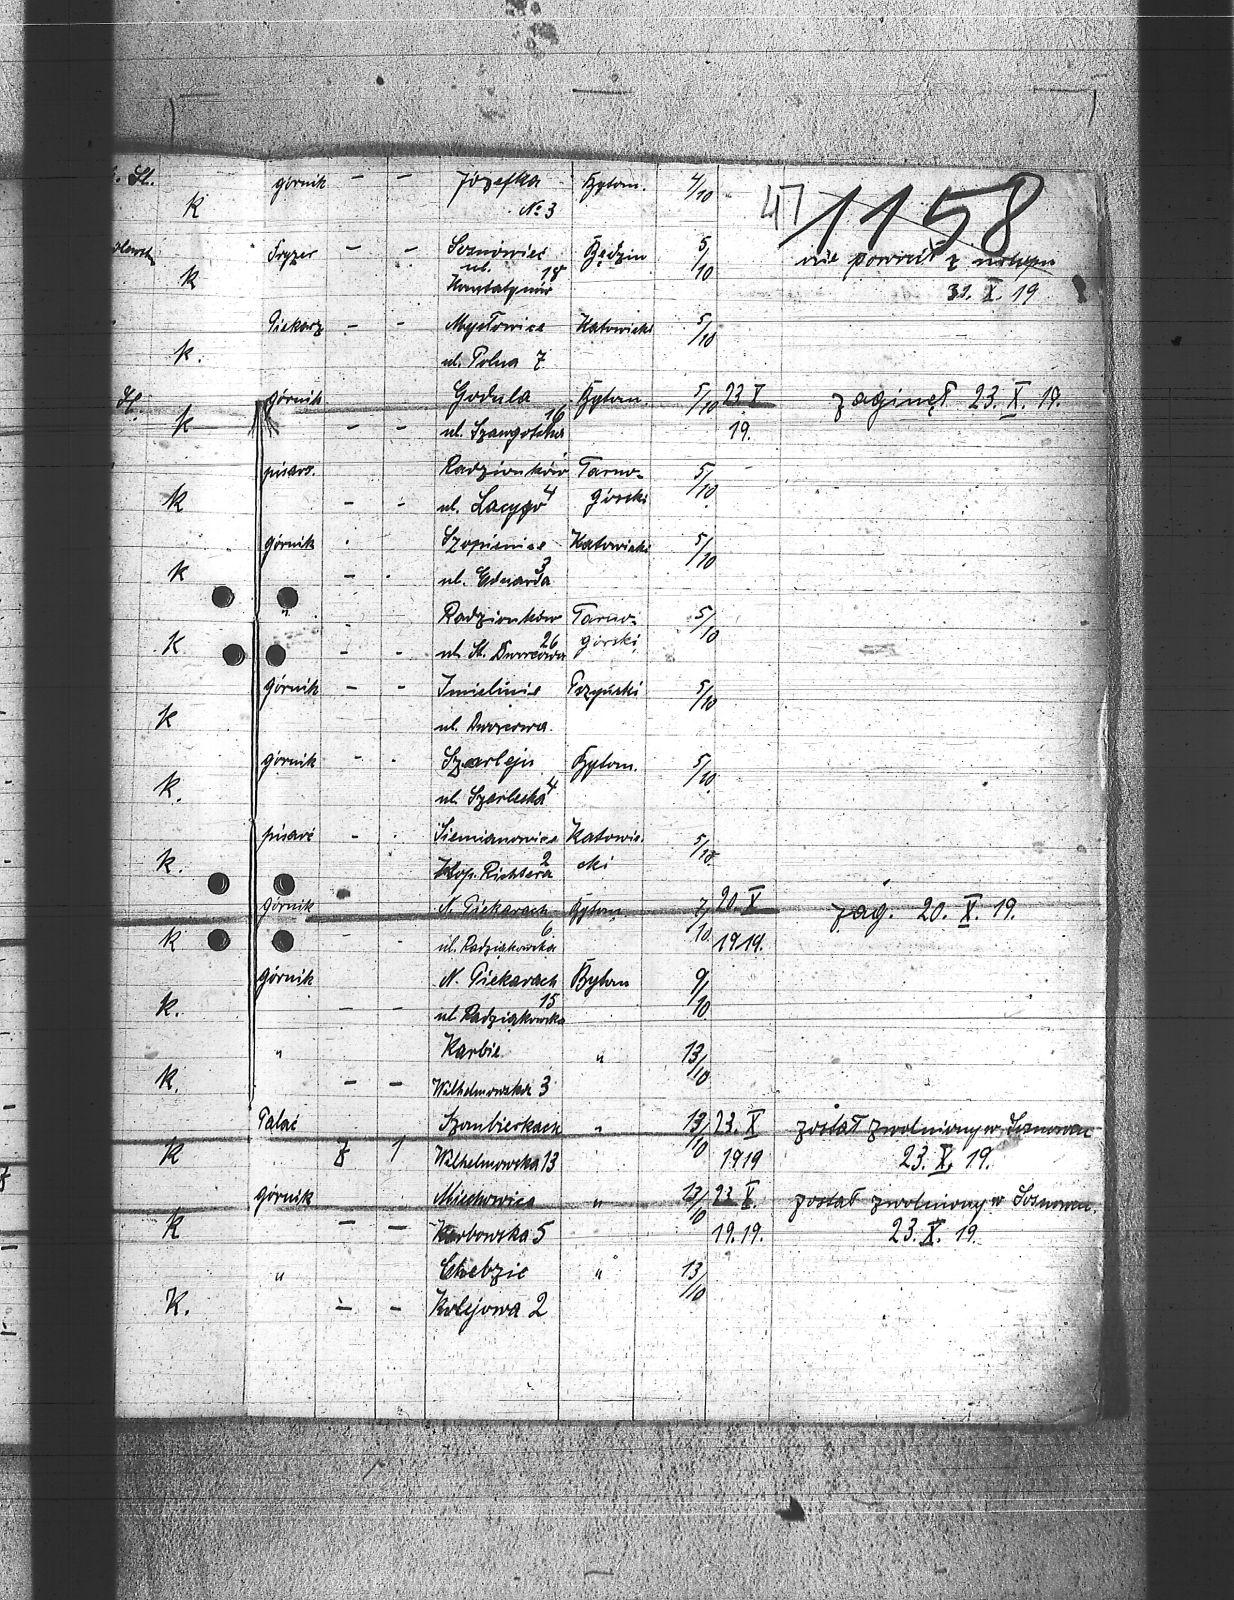 Śl. górnik – – Józefka Bytom. 4/10 47 1158
k № 3
Fryzer – – Sosnowiec Będzin 5/10 nie powrócił z urlopu
k ul. 15 31. X. 19
Piekarz – – Mysłowice Katowicki 5/10
k. ul. Polna 7
Śl. górnik Godula Bytom. 5/10 23 X zaginął 23. X. 19.
k – – ul. 16 19.
pisarz. Radzionków Tarno- 5/10
k – – ul. 4 górski
górnik Szopienice Katowicki 5/10
k – - ul. Eduarda 3
" Radzionków Tarno- 5/10
k – – ul. St. Dworcowa 26 górski
górnik – – Imielinie Pszyński 5/10
k ul. Dworcowa
górnik - - Szarleju Bytom. 5/10
k. ul. Szarleska 4
pisarz – - Siemianowice Katowic- 5/10
k. Kop. Richtera 2 cki
górnik N. Piekarach Bytom 7/10 20 X zag. 20. X. 19.
k - - ul. Radziąkowska 6 1919.
górnik N. Piekarach Bytom 9/10
k. – – ul. Radziąkowska 15
" Karbie " 13/10
k. – – Wilhelmowska 3
Szombierkach " 13/10 23. X został zwolniony w Sosnowcu
k 1 Wilhelmowska 13 1919 23. X. 19.
górnik Miechowice " 13/10 23 X. został zwolniony w Sosnowcu.
k – – Karbowska 5 19.19. 23. X. 19.
" Chebzie " 13/10
K. – – Kolejowa 2